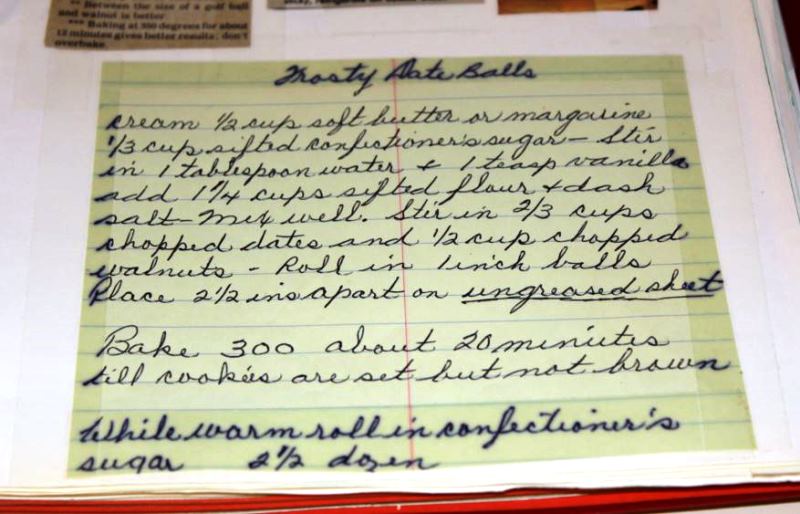 ** Between the size of a golf ball
and walnut is better.
*** Baking at 350 degrees for about
12 minutes gives better results; don't
overbake.
Frosty Date Balls
cream 1/2 cup soft butter or margarine
1/3 cup sifted confectioner's sugar - Stir
in 1 tablespoon water & 1 teasp vanilla
add 1 1/4 cups sifted flour & dash
salt - Mix well. Stir in 2/3 cups
chopped dates and 1/2 cup chopped
walnuts - Roll in 1 inch balls
Place 2 1/2 ins apart on ungreased sheet
Bake 300 about 20 minutes
till cookies are set but not brown
While warm roll in confectioner's
sugar 2 1/2 dozen